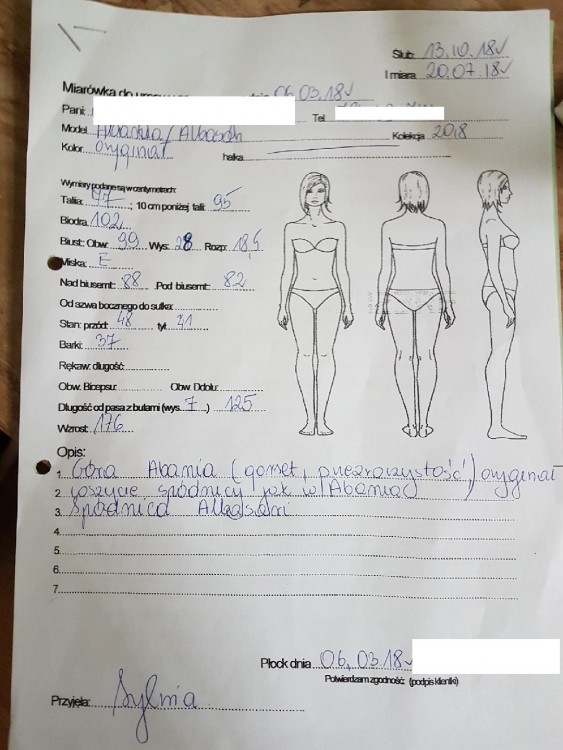 Ślub: 13.10.18
I miara 20.07.18
Miarówka do umowy dnia 06.03.18
Pani:
Tel.
Model Abania/Albasari Kolekcja 2018
Kolor oryginał halka
Wymiary podane są w centymetrach:
Talia: 77 ; 10 cm poniżej talii: 95
Biodra: 102
Biust: Obw: 99 Wys: 28 Rozp: 18,5
Miska: E
Nad biustem: 88 Pod biustem: 82
Od szwa bocznego do sutka:
Stan: przód: 48 tył: 41
Barki: 37
Rękaw: długość:
Obw. Bicepsu: Obw. Ddołu:
Długość od pasa z butami (wys. 7 ) 125
Wzrost: 176
Opis:
1. Góra Abania (gorset, przezroczystość) oryginał
2. (oszycie spódnicy jak w Abania)
3. Spódnica Albasari
4.
5.
6.
7.
Płock dnia 06.03.18
Potwierdzam zgodność: (podpis klientki)
Przyjęła: Sylwia